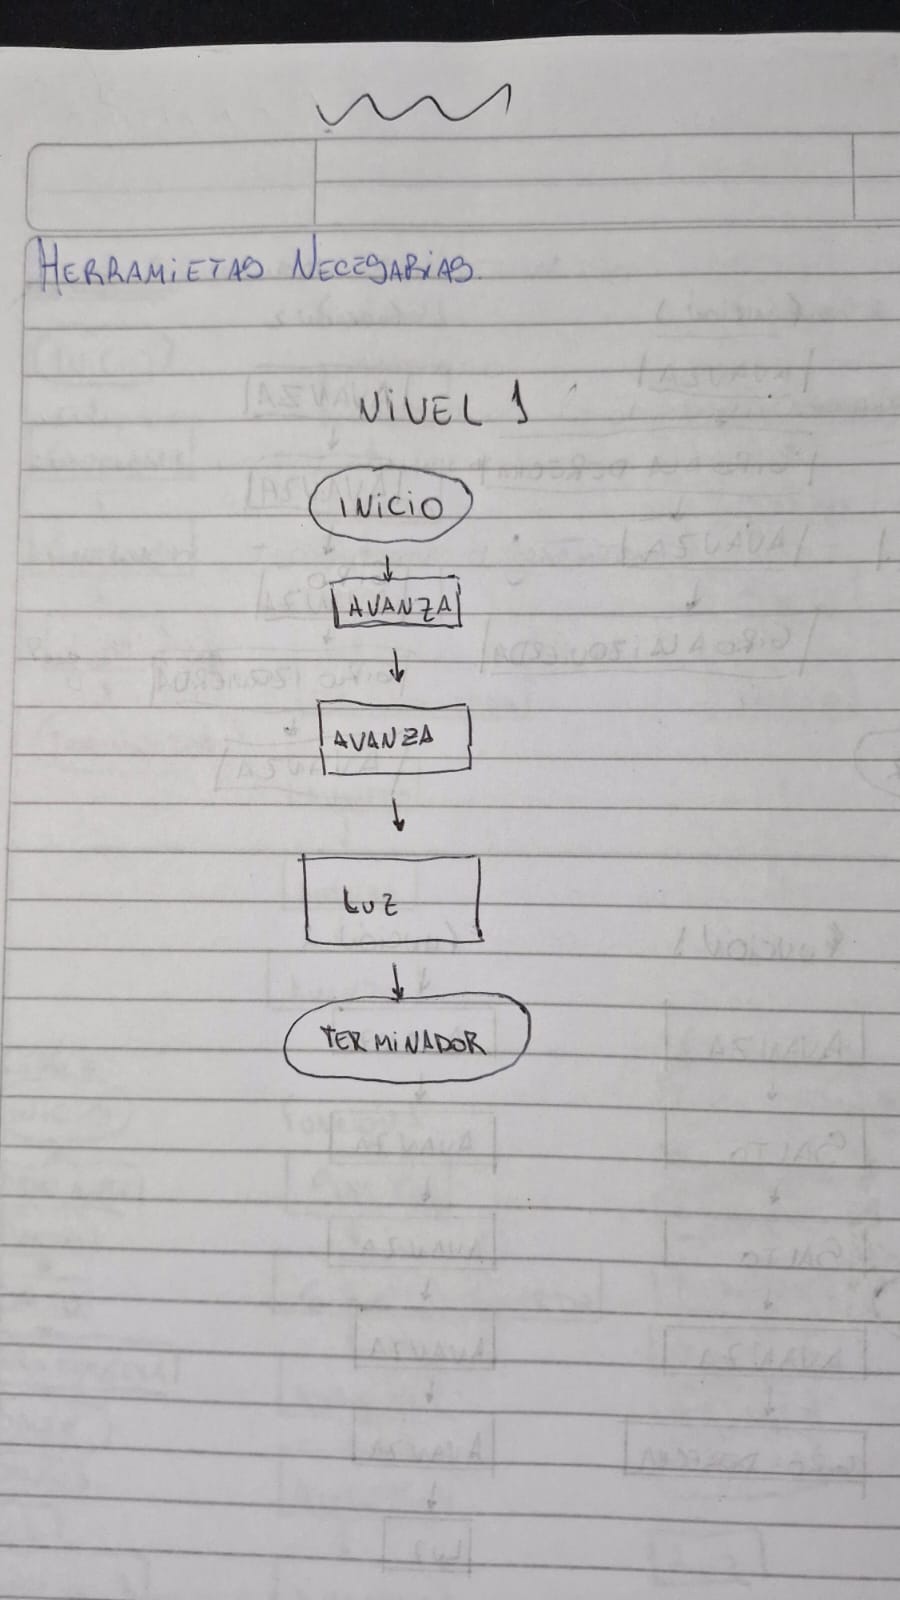 HERRAMIETAS NECESARIAS.
NIVEL 1
INICIO
AVANZA
AVANZA
LUZ
TERMINADOR